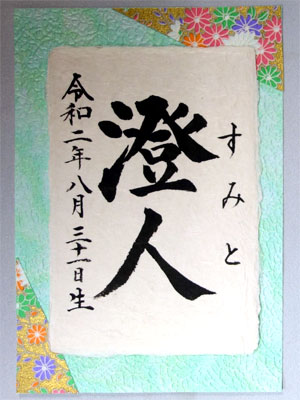 すみと
澄人
令和二年八月三十一日生